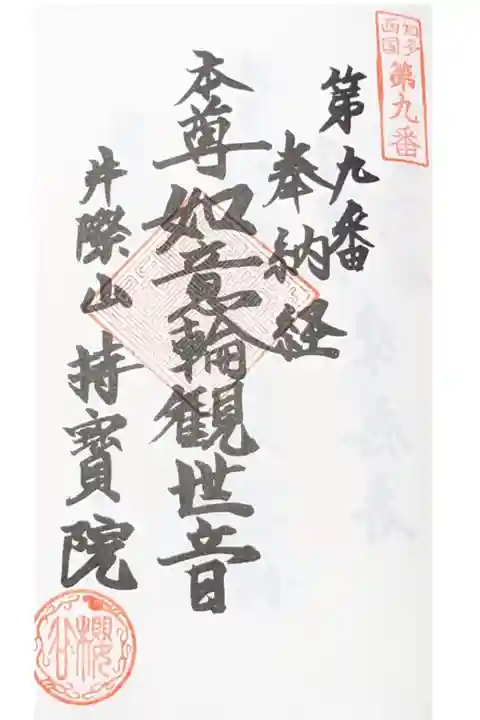 知多
西国
第九番
第九番
奉納経
本尊如意輪観世音
井際山持寳院